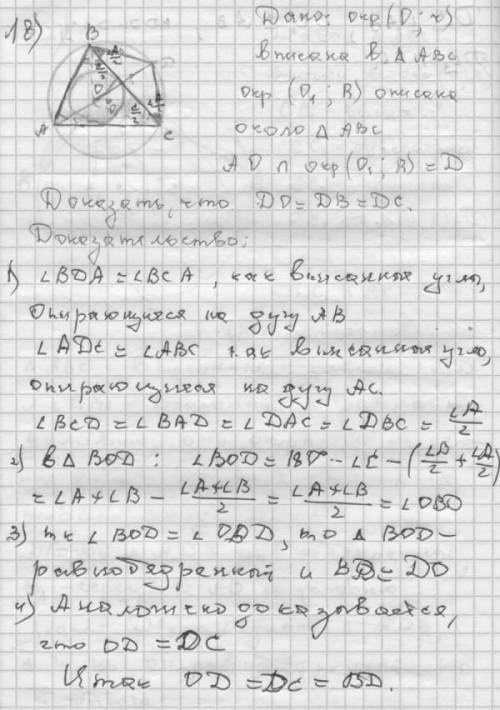 18)
B
A
C
O
Дано: окр(O; r)
вписана в △ABC
окр (O₁; R) описана
около △ABC
AO ∩ окр(O₁; R) = D
Доказать, что DO = DB = DC.
Доказательство:
1) ∠BDA = ∠BCA, как вписанные углы,
опирающиеся на дугу AB
∠ADC = ∠ABC как вписанные углы,
опирающиеся на дугу AC.
∠BCD = ∠BAD = ∠DAC = ∠DBC = ∠A/2
2) В △BOD: ∠BOD = 180° - ∠C - (∠B/2 + ∠A/2)
= ∠A + ∠B - (∠A+∠B)/2 = (∠A+∠B)/2 = ∠OBD
3) тк ∠BOD = ∠OBD, то △BOD -
равнобедренный и BD = DO
4) Аналогично доказывается,
что OD = DC
Итак OD = DC = BD.